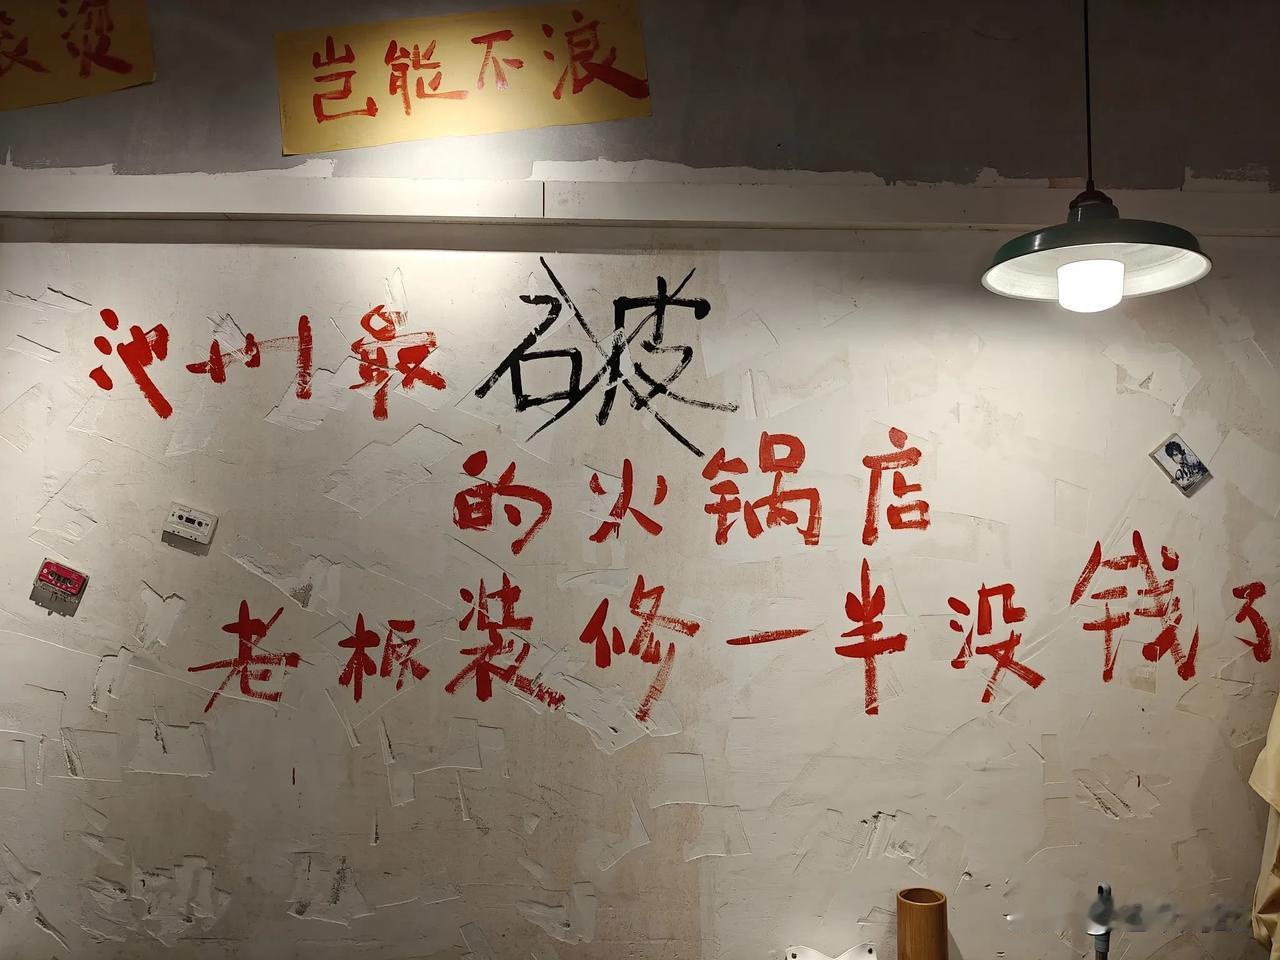 滚烫
岂能不浪
池州最破
的火锅店
老板装修一半没钱了